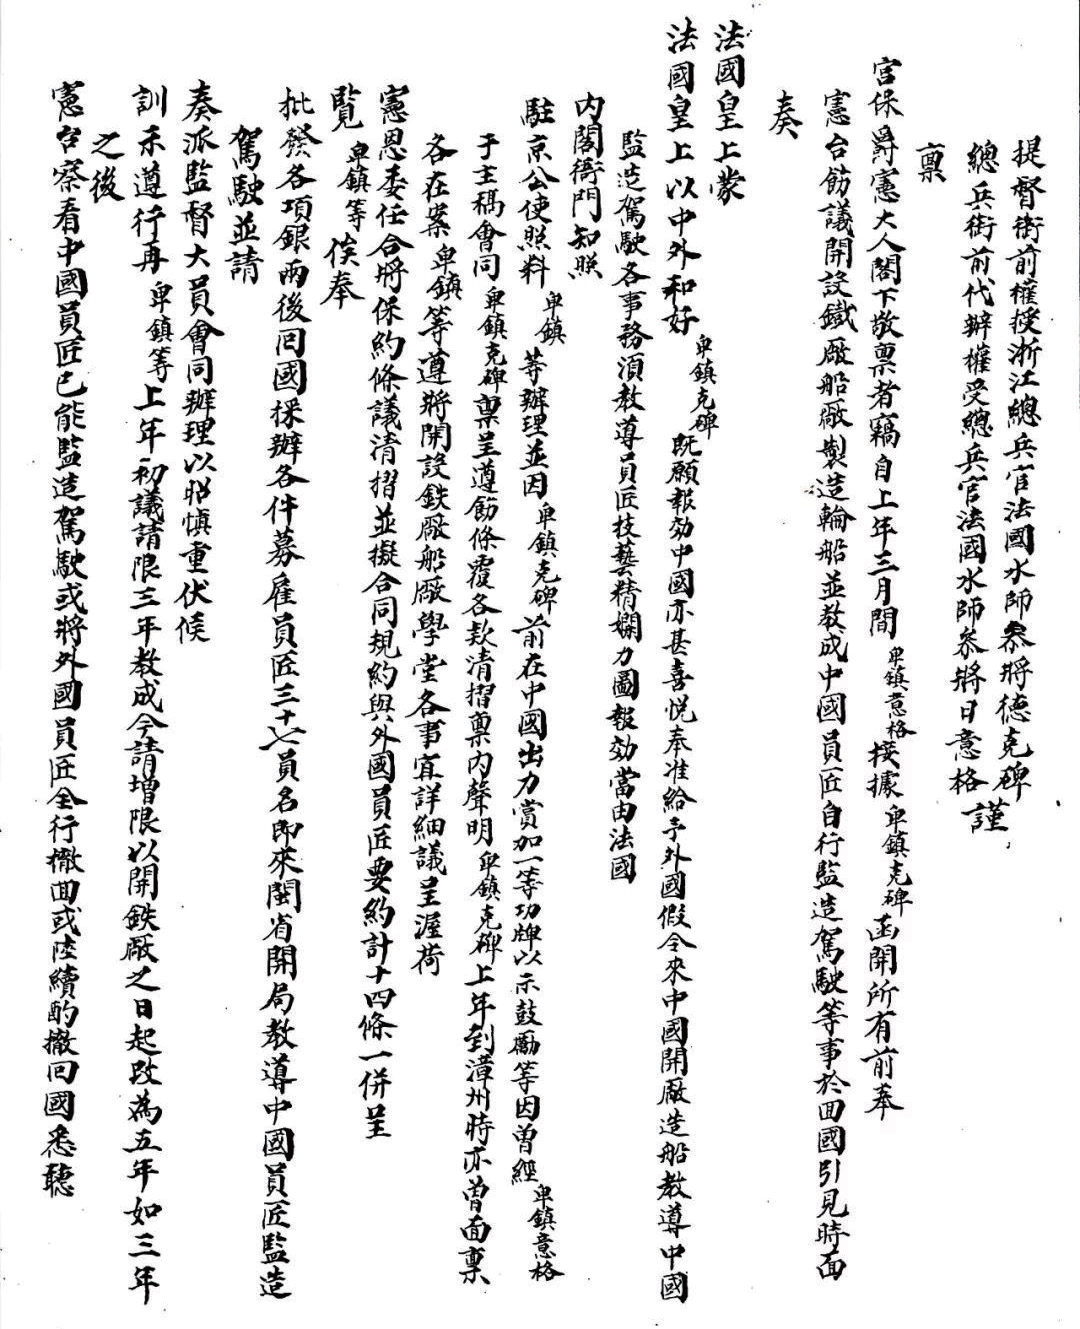 提督銜前權授浙江總兵官法國水師參將德克碑
總兵銜前代辦權受總兵官法國水師參將日意格謹
稟
宮保爵憲大人閣下敬稟者竊自上年三月間卑鎮意格接據卑鎮克碑函開所有前奉
憲台飭議開設鐵廠船廠製造輪船並教成中國員匠自行監造駕駛等事於回國引見時面
奏
法國皇上蒙
法國皇上以中外和好卑鎮克碑既願報効中國亦甚喜悅奉准給予外國假令來中國開廠造船教導中國
監造駕駛各事務須教導員匠技藝精嫻力圖報効當由法國
內閣衙門知照
駐京公使照料卑鎮等辦理並因卑鎮克碑前在中國出力賞加一等功牌以示鼓勵等因曾經卑鎮意格
于主稿會同卑鎮克碑稟呈遵飭條覆各款清摺稟內聲明卑鎮克碑上年到漳州時亦曾面稟
各在案卑鎮等遵將開設鉄廠船廠學堂各事宜詳細議呈渥荷
憲恩委任合將保約條議清摺並擬合同規約與外國員匠要約計十四條一併呈
覽卑鎮等俟奉
批發各項銀兩後囘國採辦各件募雇員匠三十七員名即來閩省開局教導中國員匠監造
駕駛並請
奏派監督大員會同辦理以昭慎重伏候
訓示遵行再卑鎮等上年初議請限三年教成今請增限以開鉄廠之日起改為五年如三年
之後
憲台察看中國員匠已能監造駕駛或將外國員匠全行撤回或陸續酌撤回國悉聽